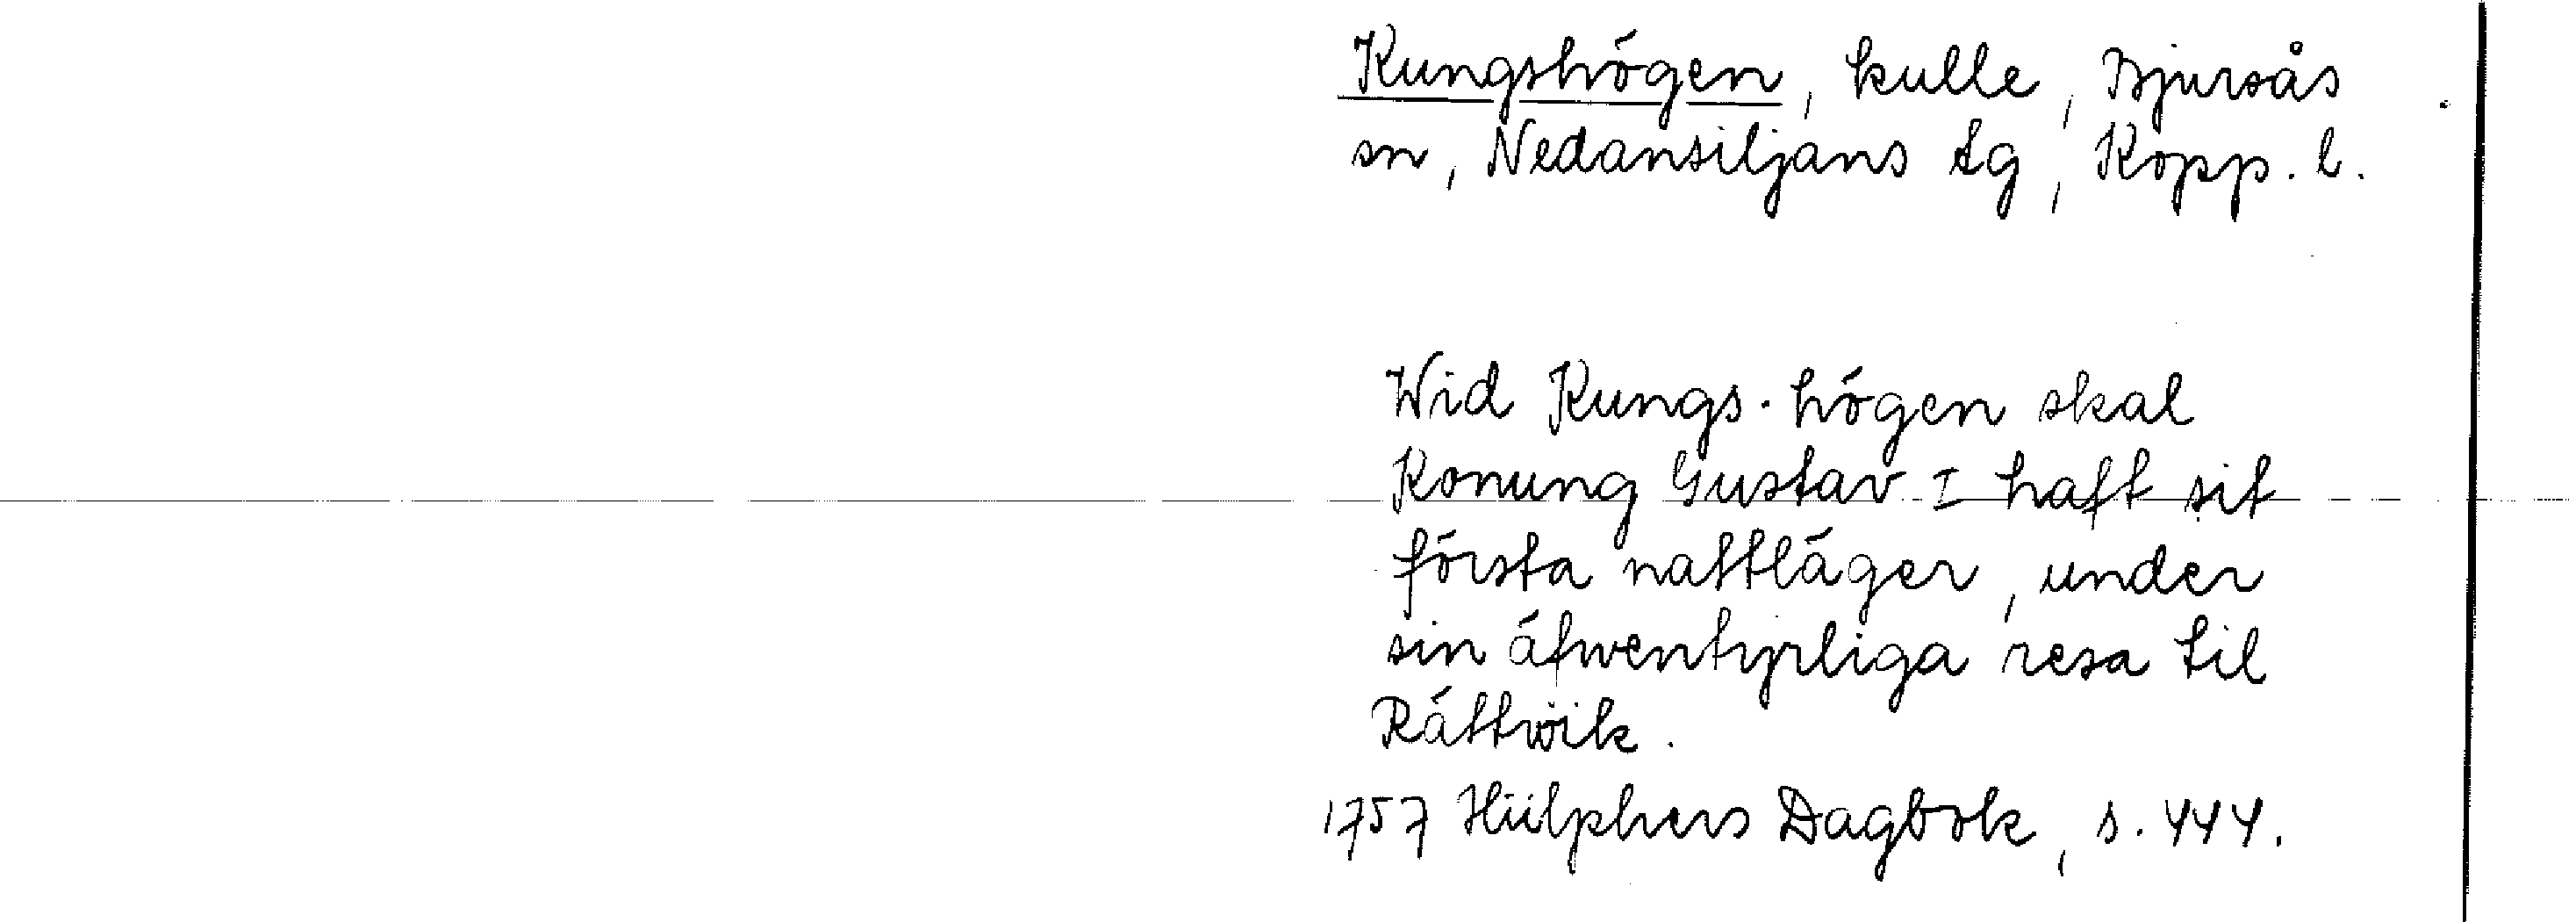 Kungshögen, kulle, Bjursås
sn, Nedansiljans tg, Kopp. l.
Wid Kungs-högen skal
Konung Gustav I haft sit
första nattläger, under
sin äfwentyrliga resa til
Rättwik.
1757 Hülphers Dagbok, s. 444.